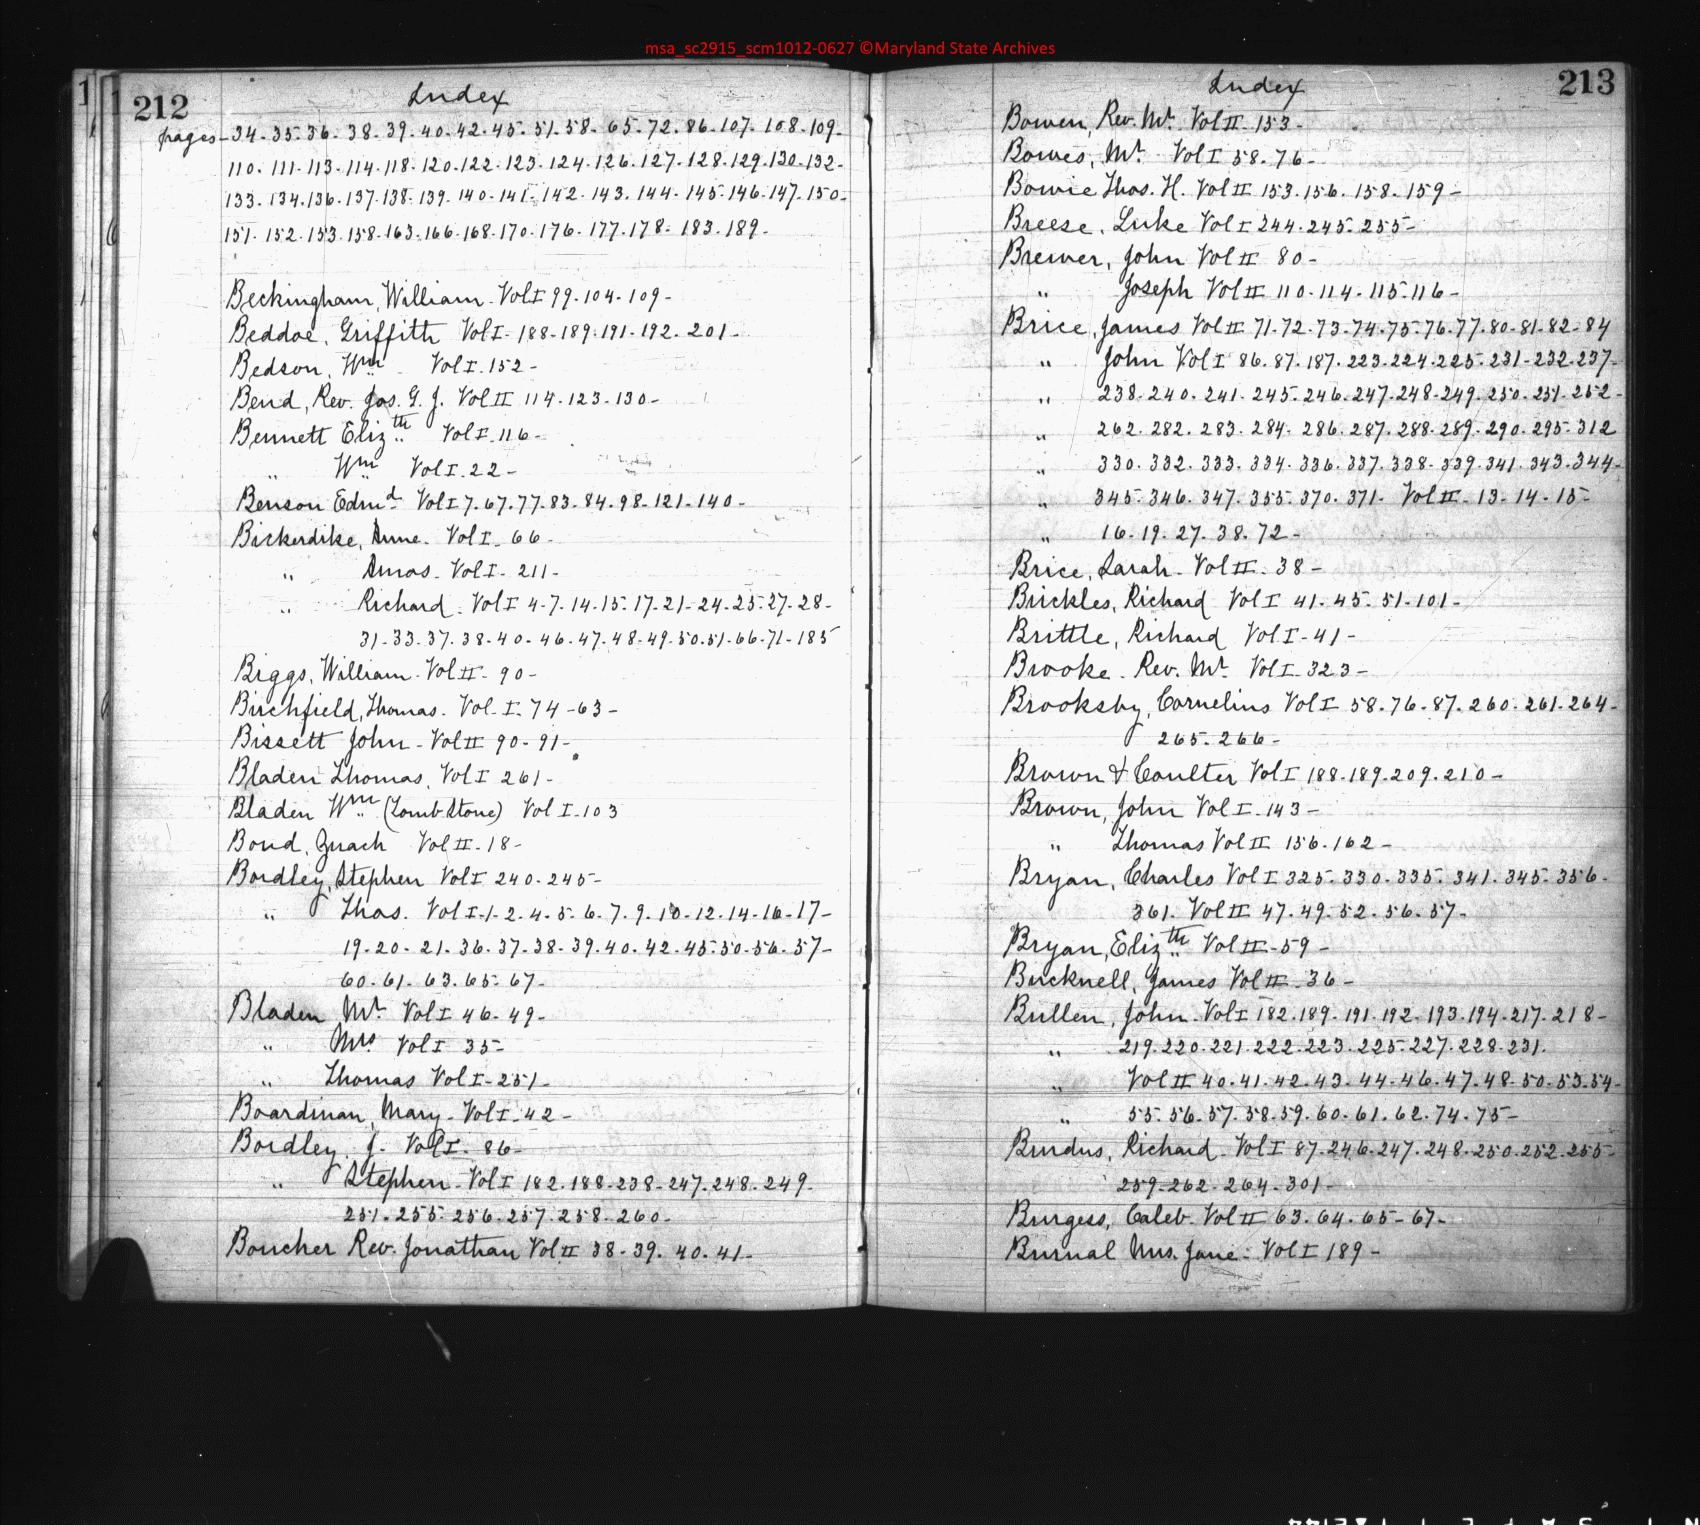 msa_sc2915_scm1012-0627 ©Maryland State Archives
212
Index
pages - 34. 35. 36. 38. 39. 40. 42. 45. 51. 58. 65. 72. 86. 107. 108. 109.
110. 111. 113. 114. 118. 120. 122. 123. 124. 126. 127. 128. 129. 130. 132-
133. 134. 136. 137. 138. 139. 140. 141. 142. 143. 144. 145. 146. 147. 150-
151. 152. 153. 158. 163. 166. 168. 170. 176. 177. 178. 183. 189.-
Beckingham, William. Vol I 99. 104. 109-
Beddoe, Griffith Vol I- 188-189. 191-192. 201-
Bedson, Wm. Vol I. 152-
Bend, Rev. Jos. G. J. Vol II 114-123-130-
Bennett Elizth Vol I. 116-
" Wm Vol I. 22-
Benson Edmd Vol I 7. 67. 77. 83. 84. 98. 121. 140-
Bickerdike, Anne. Vol I. 66-
" Amos. Vol I. 211-
" Richard. Vol I 4-7. 14. 15. 17. 21-24. 25. 27. 28-
31-33. 37. 38. 40. 46. 47. 48. 49. 50. 51. 66. 71. 185
Biggs, William. Vol II. 90-
Birchfield, Thomas. Vol. I. 74-63-
Bissett John-Vol II 90-91-
Bladen Thomas, Vol I 261-
Bladen Wm (Tomb Stone) Vol I. 103
Bond, Zuach Vol II. 18-
Bordley, Stephen Vol I 240-245-
" Thos. Vol I. 1-2. 4. 5. 6. 7. 9. 10. 12. 14. 16. 17-
19-20-21. 36. 37-38. 39. 40. 42. 45. 50. 56. 57-
60. 61. 63. 65. 67-
Bladen Mr. Vol I 46. 49-
" Mrs Vol I 35-
" Thomas Vol I-251-
Boardman, Mary. Vol I. 42-
Bordley, J. Vol I. 86-
" Stephen-Vol I 182. 188-238-247. 248. 249.
251. 255. 256. 257. 258. 260-
Boucher Rev. Jonathan Vol II 38-39. 40. 41-
213
Index
Bowen, Rev. Mr. Vol II. 153-
Bowes, Mr. Vol I 58. 76-
Bowie Thos. H. Vol II 153. 156. 158. 159-
Breese, Luke Vol I 244. 245. 255-
Brewer, John Vol II 80-
" Joseph Vol II 110-114. 115. 116-
Brice, James Vol II 71. 72. 73. 74. 75. 76. 77. 80. 81. 82. 84
" John Vol I 86. 87. 187. 223. 224. 225. 231-232. 237-
" 238-240. 241. 245. 246. 247. 248. 249. 250. 251. 252-
" 262. 282. 283. 284. 286. 287. 288. 289. 290. 295. 312
" 330. 332. 333. 334. 336. 337. 338. 339. 341. 343. 344-
" 345. 346. 347. 355. 370. 371. Vol II. 13-14-15-
" 16. 19. 27. 38. 72-
Brice, Sarah-Vol II. 38-
Brickles, Richard Vol I 41. 45. 51. 101-
Brittle, Richard Vol I-41-
Brooke. Rev. Mr Vol I. 323-
Brooksby, Cornelius Vol I 58. 76. 87. 260. 261. 264-
265. 266-
Brown & Coulter Vol I 188. 189. 209. 210-
Brown, John Vol I. 143-
" Thomas Vol II 156. 162-
Bryan, Charles Vol I 325. 330. 335. 341. 345. 356-
361. Vol II 47. 49. 52. 56. 57-
Bryan, Elizth Vol II-59-
Bucknell, James Vol II. 36-
Bullen, John. Vol I 182. 189. 191. 192. 193. 194. 217. 218-
" 219. 220. 221. 222. 223. 225. 227. 228. 231.
" Vol II 40. 41. 42. 43. 44. 46. 47. 48. 50. 53. 54-
" 55. 56. 57. 58. 59. 60. 61. 62. 74. 75-
Burdus, Richard. Vol I 87. 246. 247. 248. 250. 252. 255-
259. 262. 264. 301-
Burgess, Caleb. Vol II 63. 64. 65-67-
Burnal Mrs. Jane-Vol I 189-